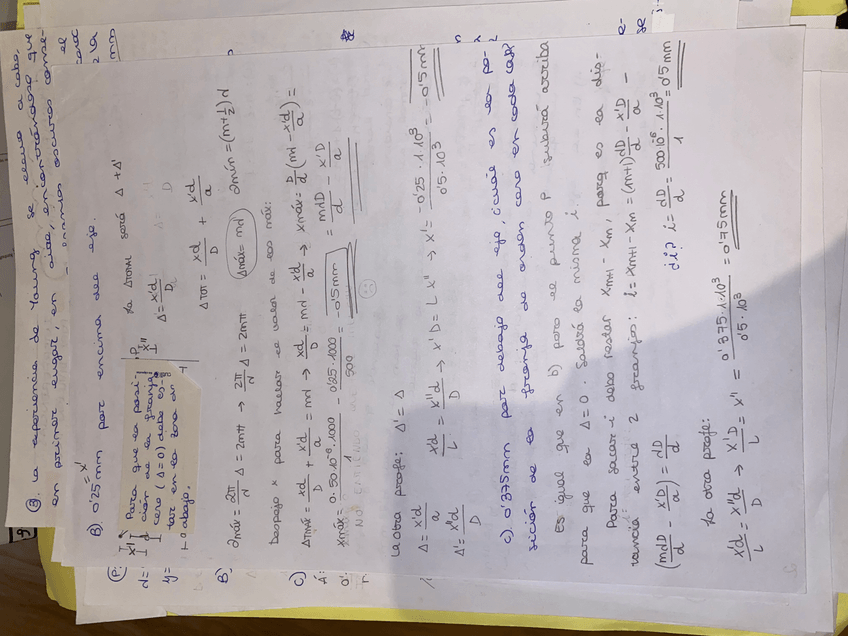 3. La experiencia de Young se lleva a cabo,
en primer lugar, en aire, encontrándose que
B) 0'25 mm = x' por encima del eje.
Para que la posi-
ción de la franja
cero (Δ=0) debe es-
tar en la zona de
abajo.
Δ = x'd/a
La Δtotal será Δ + Δ'
Δ TOT = xd/D + x'd/a
∂máx = 2π/λ Δ = 2mπ → 2π/λ Δ = 2mπ Δmáx = mλ ∂mín = (m+1/2)λ
Despejo x para hallar el valor de los máx:
ΔTmáx = xd/D + x'd/a = mλ → xd/D = mλ - x'd/a → xmáx = D/d (mλ - x'd/a) =
xmáx = 0·50·10⁻⁶·1000/1 - 0'25·1000/500 = -0'5 mm = mλD/d - x'D/a
La otra profe: Δ' = Δ
Δ = x'd/a
Δ' = x''d/D
x'd/L = x''d/D → x'D = L x'' → x' = -0'25·1·10³/0'5·10³ = -0'5 mm
C) 0'375 mm por debajo del eje, ¿cuál es la po-
sición de la franja de orden cero en cada caso?
Es igual que en b) pero el punto P subirá arriba
para que la Δ=0. Saldrá la misma i.
Para sacar i debo restar xm+1 - xm, porq es la dis-
tancia entre 2 franjas: i = xm+1 - xm = (m+1) λD/d - x'D/a -
(mλD/d - x'D/a) = λD/d
¿i? i = λD/d = 500·10⁻⁶·1·10³/1 = 0'5 mm
La otra profe:
x'd/L = x''d/D → x'D/L = x'' = 0'375·1·10³/0'5·10³ = 0'75 mm